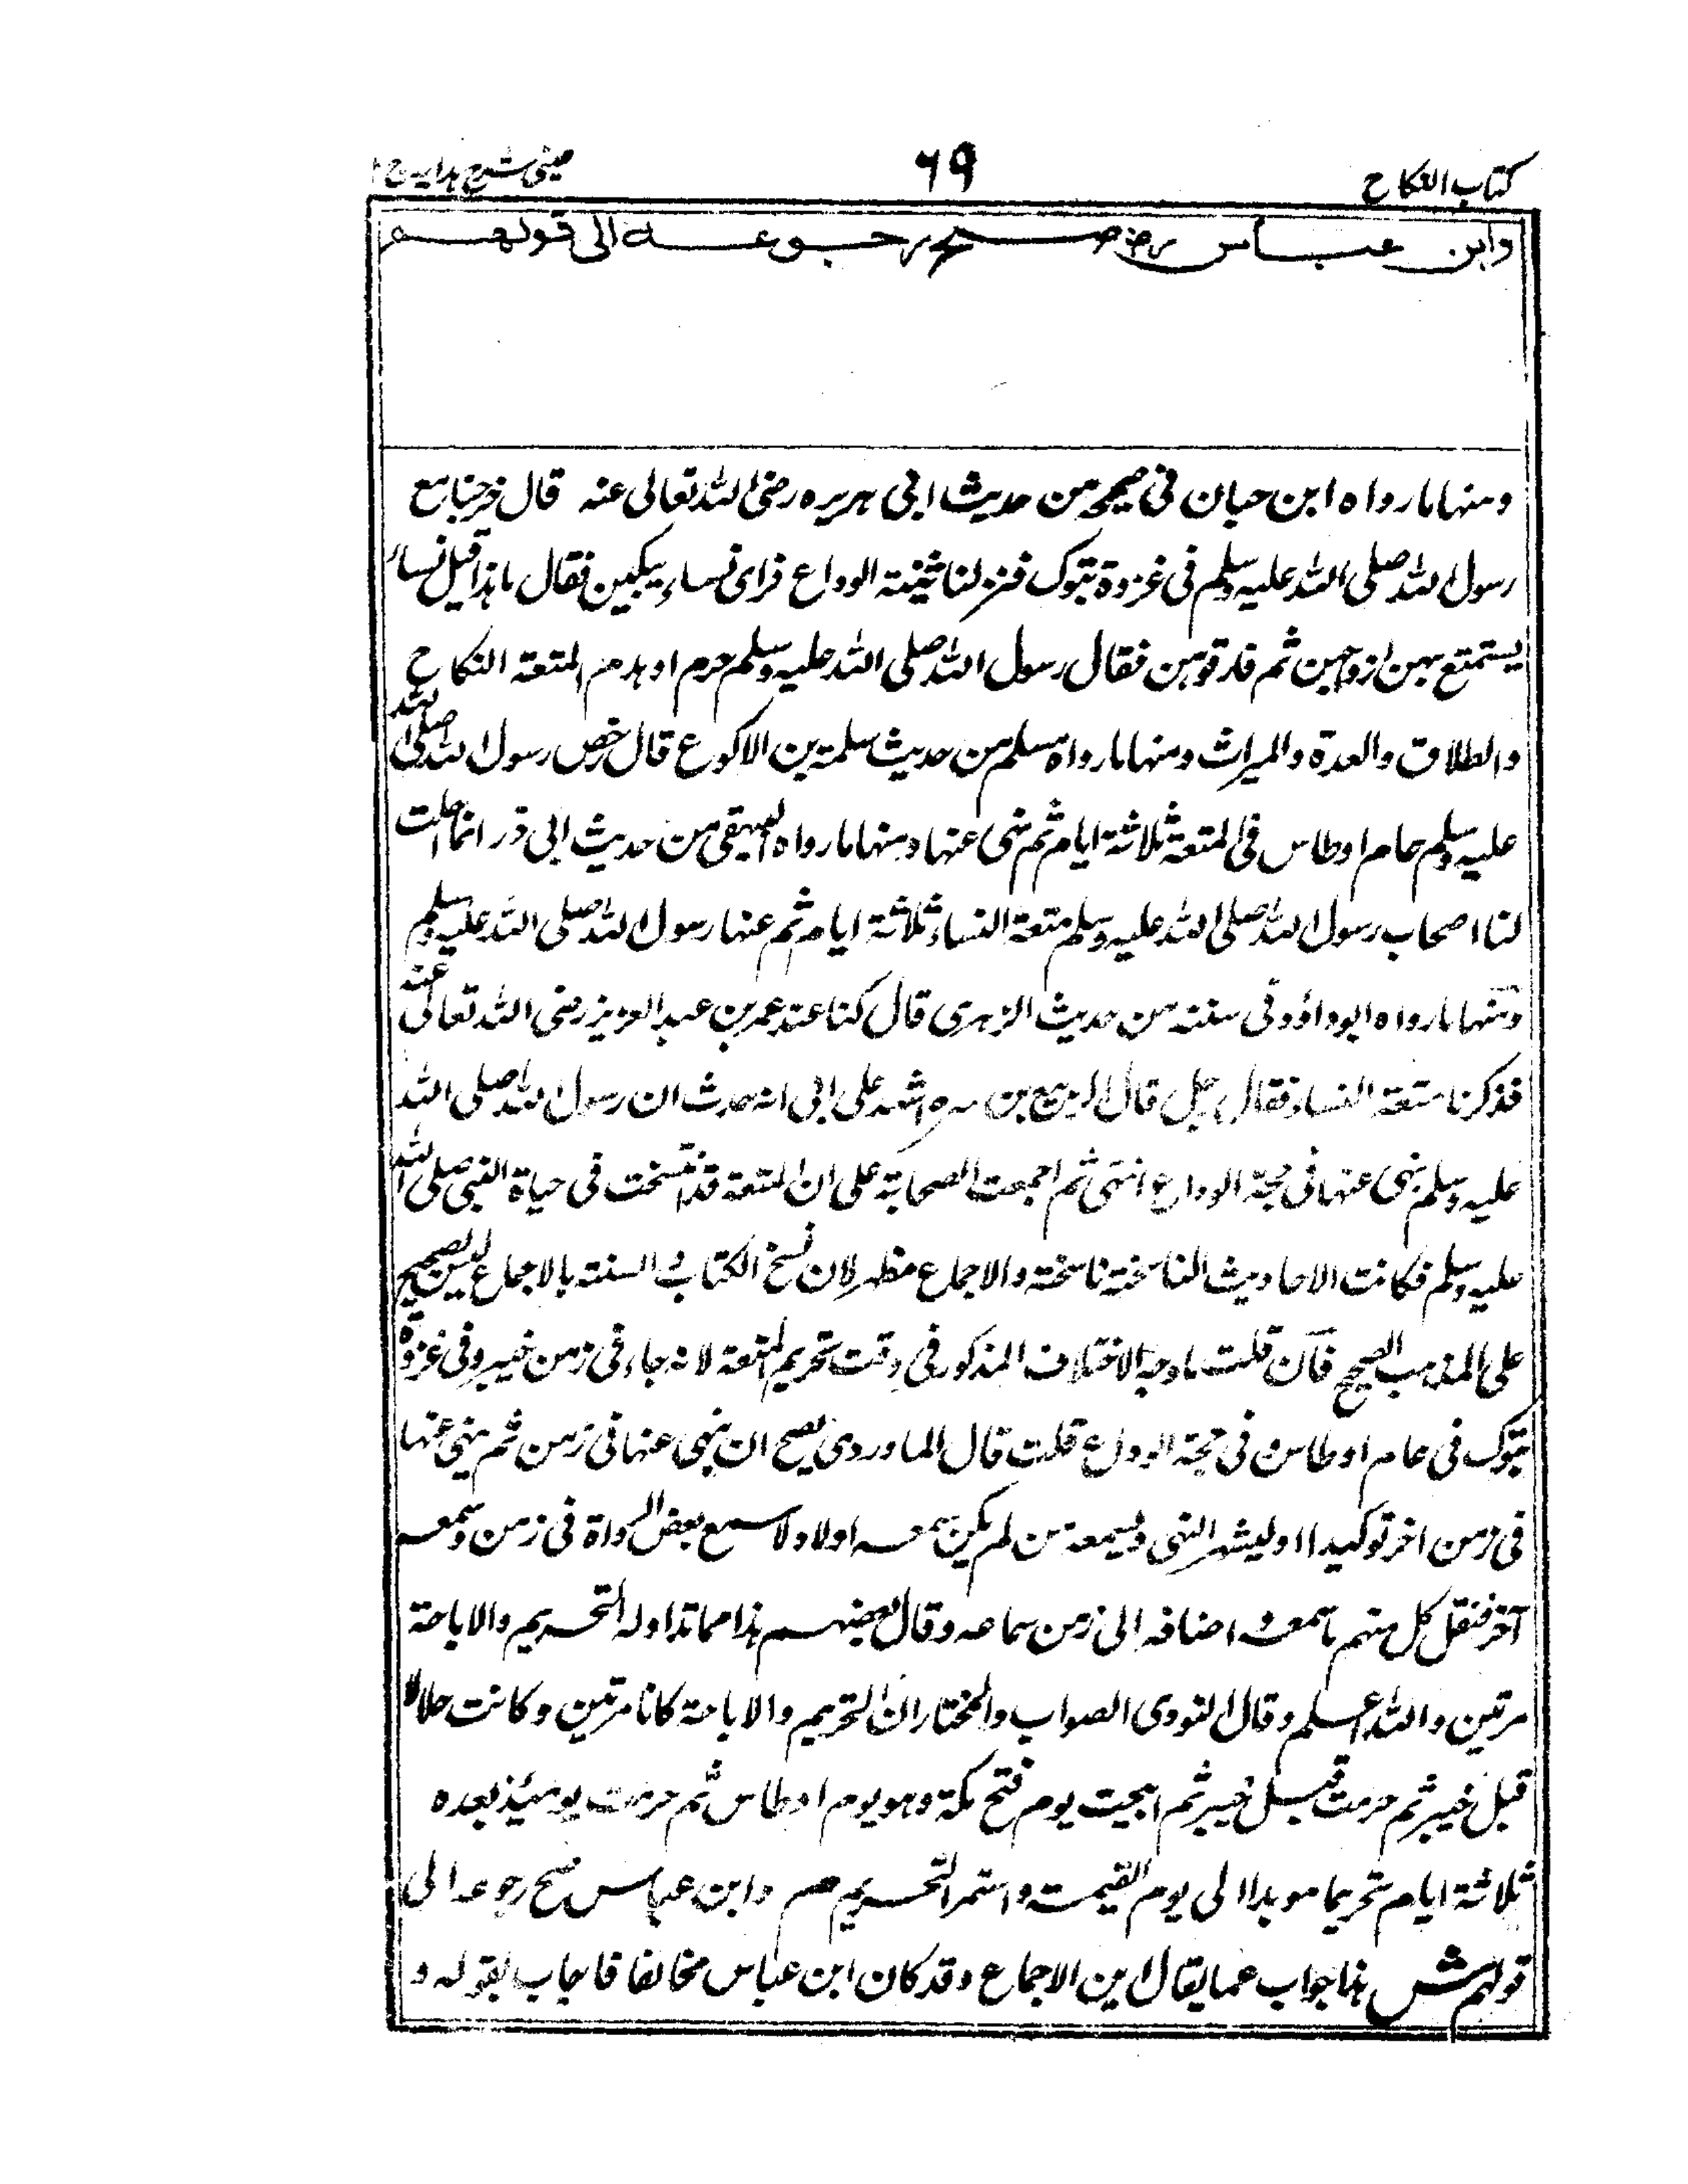 كتاب النكاح ٦٩ عینی شرح ہدایہ ج ٢
وابن عباس رض صح رجوعه الى قولهم
ومنها ما رواه ابن حبان فی صحیحه من حدیث ابی هریره رضی الله تعالی عنه قال خرجنا مع
رسول الله صلی الله علیه وسلم فی غزوة تبوک فنزلنا ثنیة الوداع فرای نساء یبکین فقال ما هذا قیل نساء
یستمتع بهن ازواجهن ثم فارقوهن فقال رسول الله صلی الله علیه وسلم حرم او هدم المتعة النکاح
والطلاق والعدة والمیراث ومنها ما رواه مسلم من حدیث سلمة بن الاکوع قال رخص رسول الله صلی الله
علیه وسلم عام اوطاس فی المتعة ثلاثة ایام ثم نهی عنها ومنها ما رواه البیهقی من حدیث ابی ذر انما احلت
لنا اصحاب رسول الله صلی الله علیه وسلم متعة النساء ثلاثة ایام ثم عنها رسول الله صلی الله علیه وسلم
ومنها ما رواه ابو داؤد فی سننه من حدیث الزهری قال کنا عند عمر بن عبد العزیز رضی الله تعالی عنه
فذکرنا متعة النساء فقال رجل قال الربیع بن سبره اشهد علی ابی انه حدث ان رسول الله صلی الله
علیه وسلم نهی عنها فی حجة الوداع انتهی ثم اجمعت الصحابة علی ان المتعة قد انتسخت فی حیاة النبی صلی الله
علیه وسلم فکانت الاحادیث الناسخة ناسخة والاجماع مظهر لان نسخ الکتاب والسنة بالاجماع لیس بصحیح
علی المذهب الصحیح فان قلت ما وجه الاختلاف المذکور فی وقت تحریم المتعة لانه جاء فی زمن خیبر وفی غزوة
تبوک فی عام اوطاس وفی حجة الوداع قلت قال الماوردی یصح ان ینهی عنها فی زمن ثم ینهی عنها
فی زمن اخر توکیدا او لیشهر النهی ولیسمعه من لم یکن سمعه اولا ولا سمع بعض الرواة فی زمن وسمعه
آخر فنقل کل منهم ما سمعه واضافه الی زمن سماعه وقال بعضهم هذا مما تداوله التحریم والاباحة
مرتین والله اعلم وقال النووی الصواب والمختار ان التحریم والاباحة کانا مرتین وکانت حلالا
قبل خیبر ثم حرمت قبل خیبر ثم ابیحت یوم فتح مکة وهو یوم اوطاس ثم حرمت یومئذ بعده
ثلاثة ایام تحریما موبدا الی یوم القیمة واستمر التحریم م وابن عباس صح رجوعه الی
قولهم ش هذا جواب عما یقال این الاجماع وقد کان ابن عباس مخالفا فاجاب بقوله و